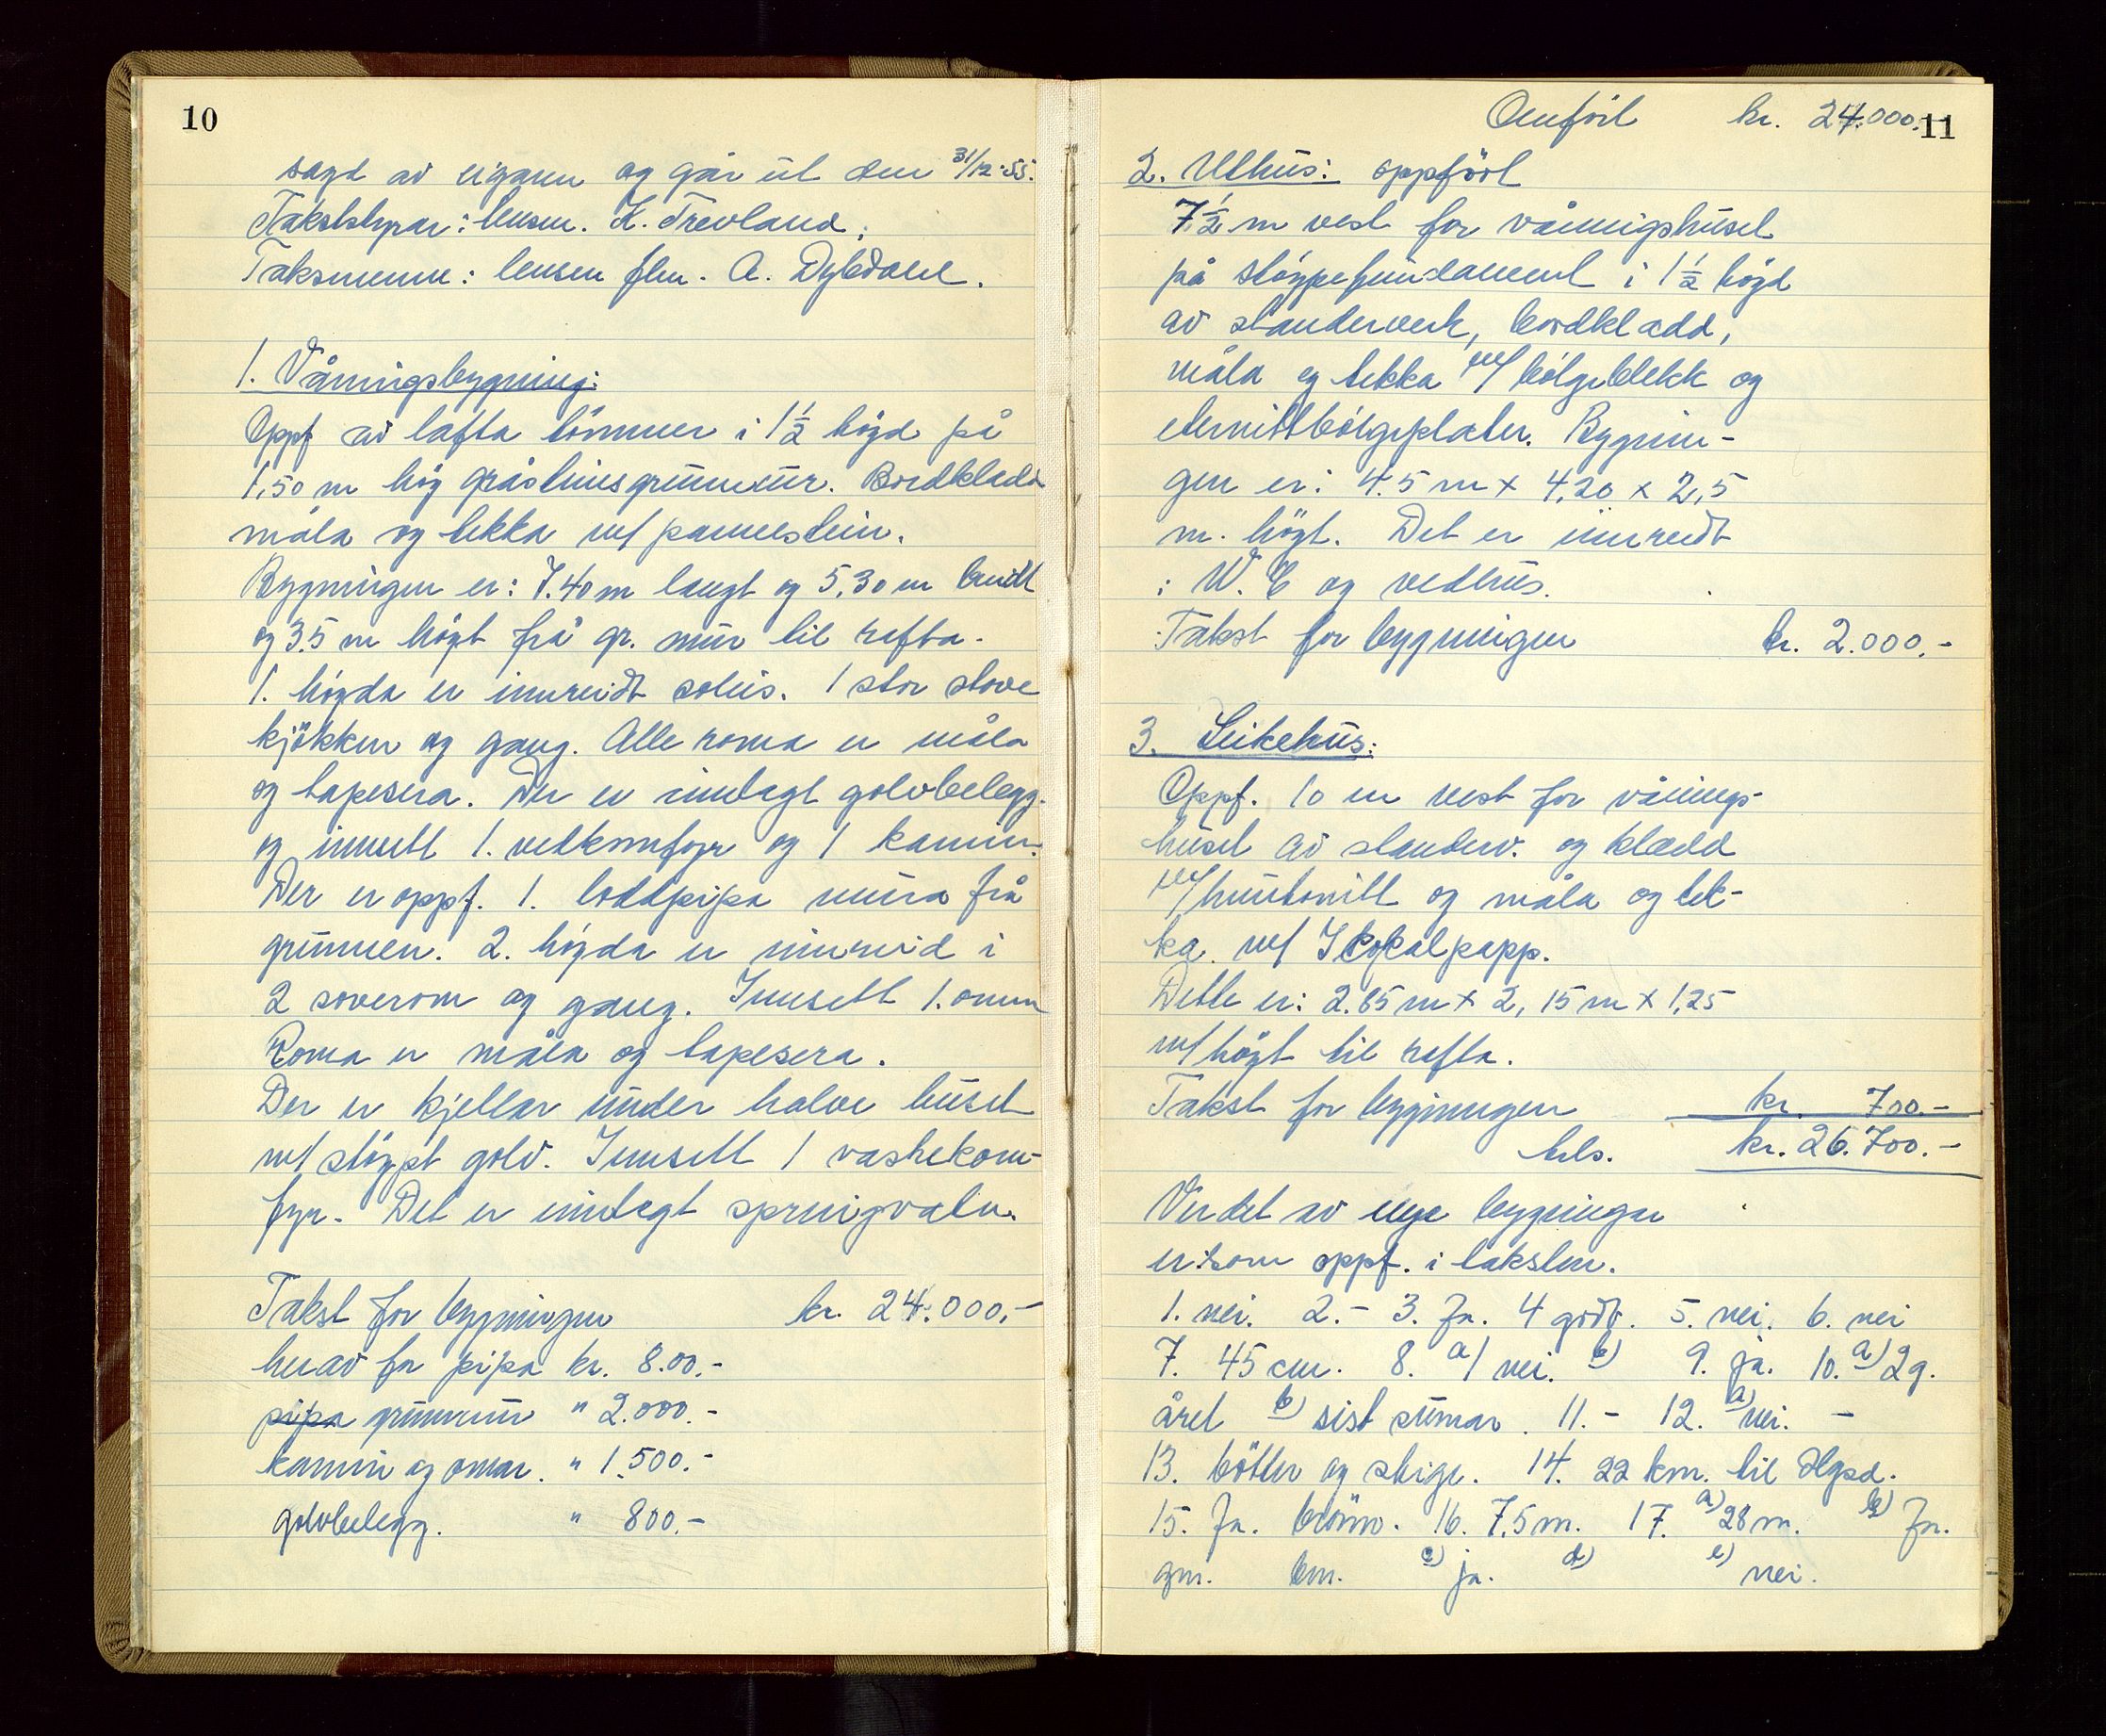 10
sagd av eigaren og går ut den 31/12-55.
Takststyrar: lensm. K. Trevland.
Taksmenn: lensm flm. A. Dybdahl.
1. Våningsbygning:
Oppf av lafta tömmer i 1 1/2 högd på
1,50 m hög gråsteinsgrunnmur. Bordkledd
måla og tekka m/ pannestein.
Bygningen er: 7.40 m langt og 5,30 m breidt
og 3.5 m högt frå gr. mur til rafta.
1. högda er innreidt soleis. 1 stor stove
kjökken og gang. Alle roma er måla
og tapesera. Der er innlagt golvbelegg.
og innsett 1. vedkomfyr og 1 kamin.
Der er oppf. 1. loddpipa mura frå
grunnen. 2. högda er innreid i
2 soverom og gang. Innsett 1. omn
Roma er måla og tapesera.
Der er kjellar under halve huset
m/ stöypt golv. Innsett 1 vaskekom-
fyr. Det er innlagt springvatn.
Takst for bygningen kr. 24.000,-
herav for pipa kr. 8.00.-
pipa grunnmur " 2.000.-
kamin og omnar. " 1.500.-
golvbelegg. " 800.-
11
Omförl kr. 24.000.-
2. Uthus: oppförl
7 1/2 m vest for våningshuset
på stöypefundament i 1 1/2 högd
av standerverk, bordkledd,
måla og tekka m/ bölgeblekk og
eternittbölgeplater. Bygnin-
gen er: 4.5 m x 4,20 x 2,5
m. högt. Det er innreidt
: W. C og vedhus.
Takst for bygningen kr. 2.000.-
3. Leikehus:
Oppf. 10 m vest for vånings-
huset av standerv. og kledd
m/ huntonitt og måla og tek-
ka m/ Ikopalpapp.
Dette er: 2.85 m x 2,15 m x 1,25
m/ högt til rafta.
Takst for bygningen kr. 700.-
tils. kr. 26.700.-
Verdet av nye bygningar
er: som oppf. i taksten.
1. nei. 2.- 3. Ja. 4 godt. 5. nei. 6. nei
7. 45 cm. 8. a/ nei. b) 9. ja. 10. a) 2g.
året b) sist sumar. 11.- 12. a) nei. -
13. bötter og stige. 14. 22 km. til Hgsd.
15. Ja. brönn. 16. 7,5 m. 17. a) 28 m. b) Ja.
gm. bm. c) ja. d) e) nei.